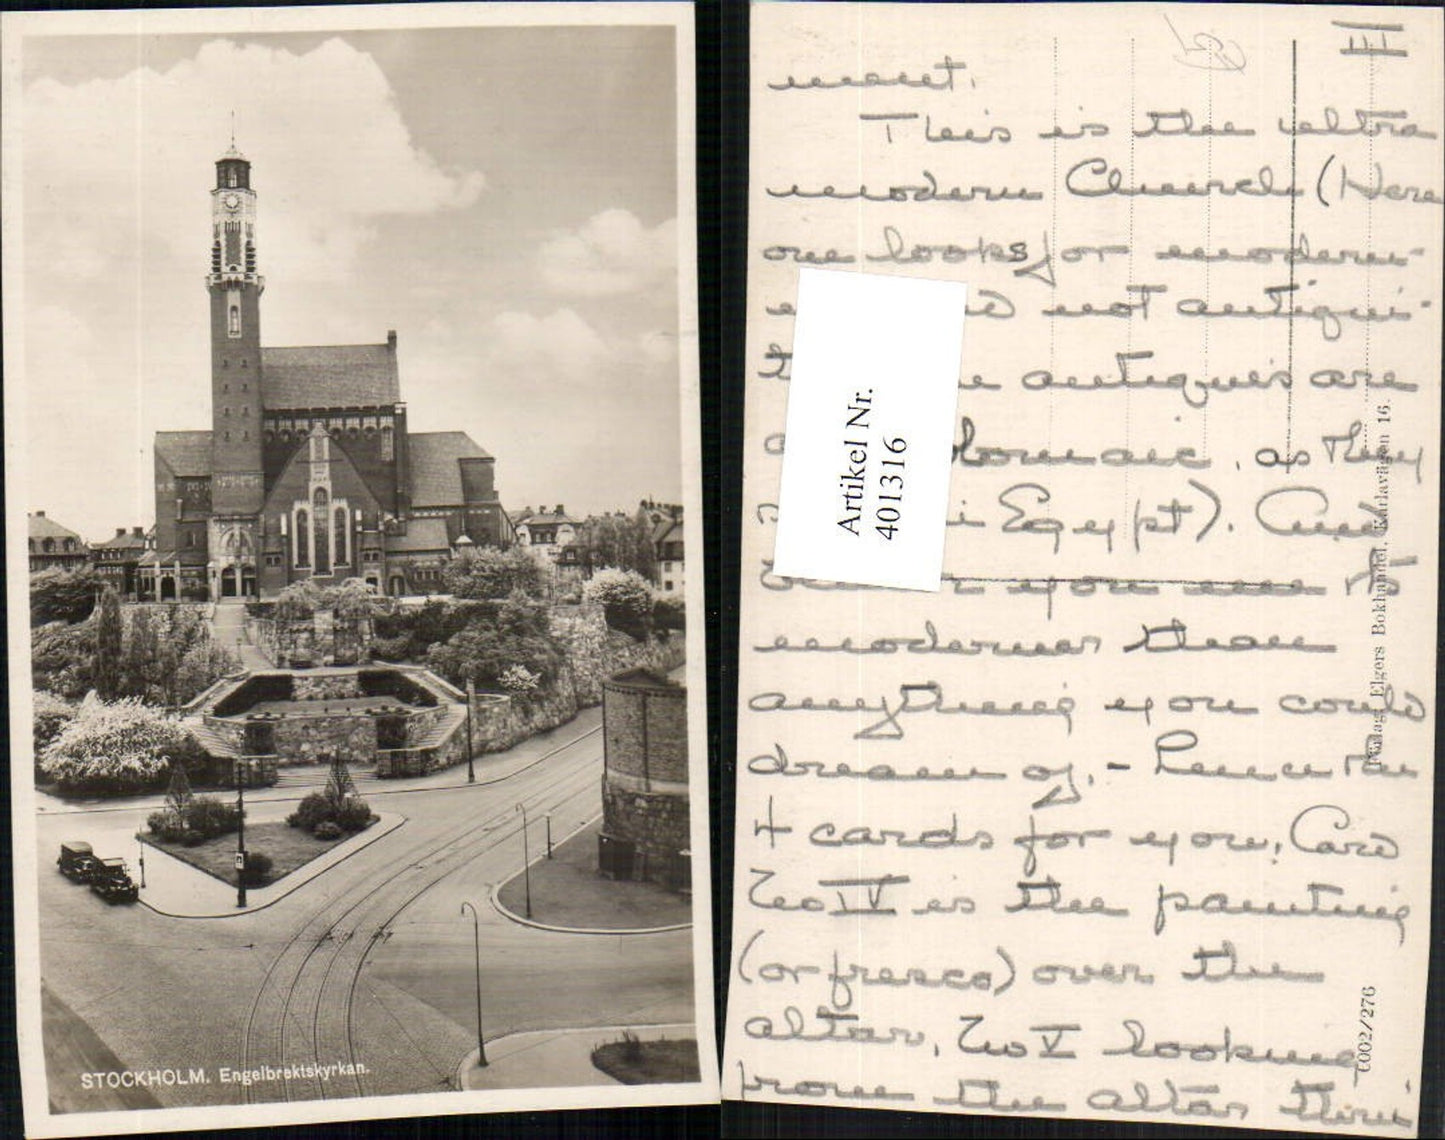 STOCKHOLM. Engelbrektskyrkan.
III
ment.
This is the ultra
modern Church (Here
one looks for modern-
not antiqui-
antiques are
as they
Egypt). And
you me to
moderner than
anything you could
dream of, - hence the
4 cards for you, Card
No IV is the painting
(or fresco) over the
altar, No V looking
from the altar thru
Artikel Nr.
401316
Elgers Bokhandel, Karlavägen 16.
6002/276